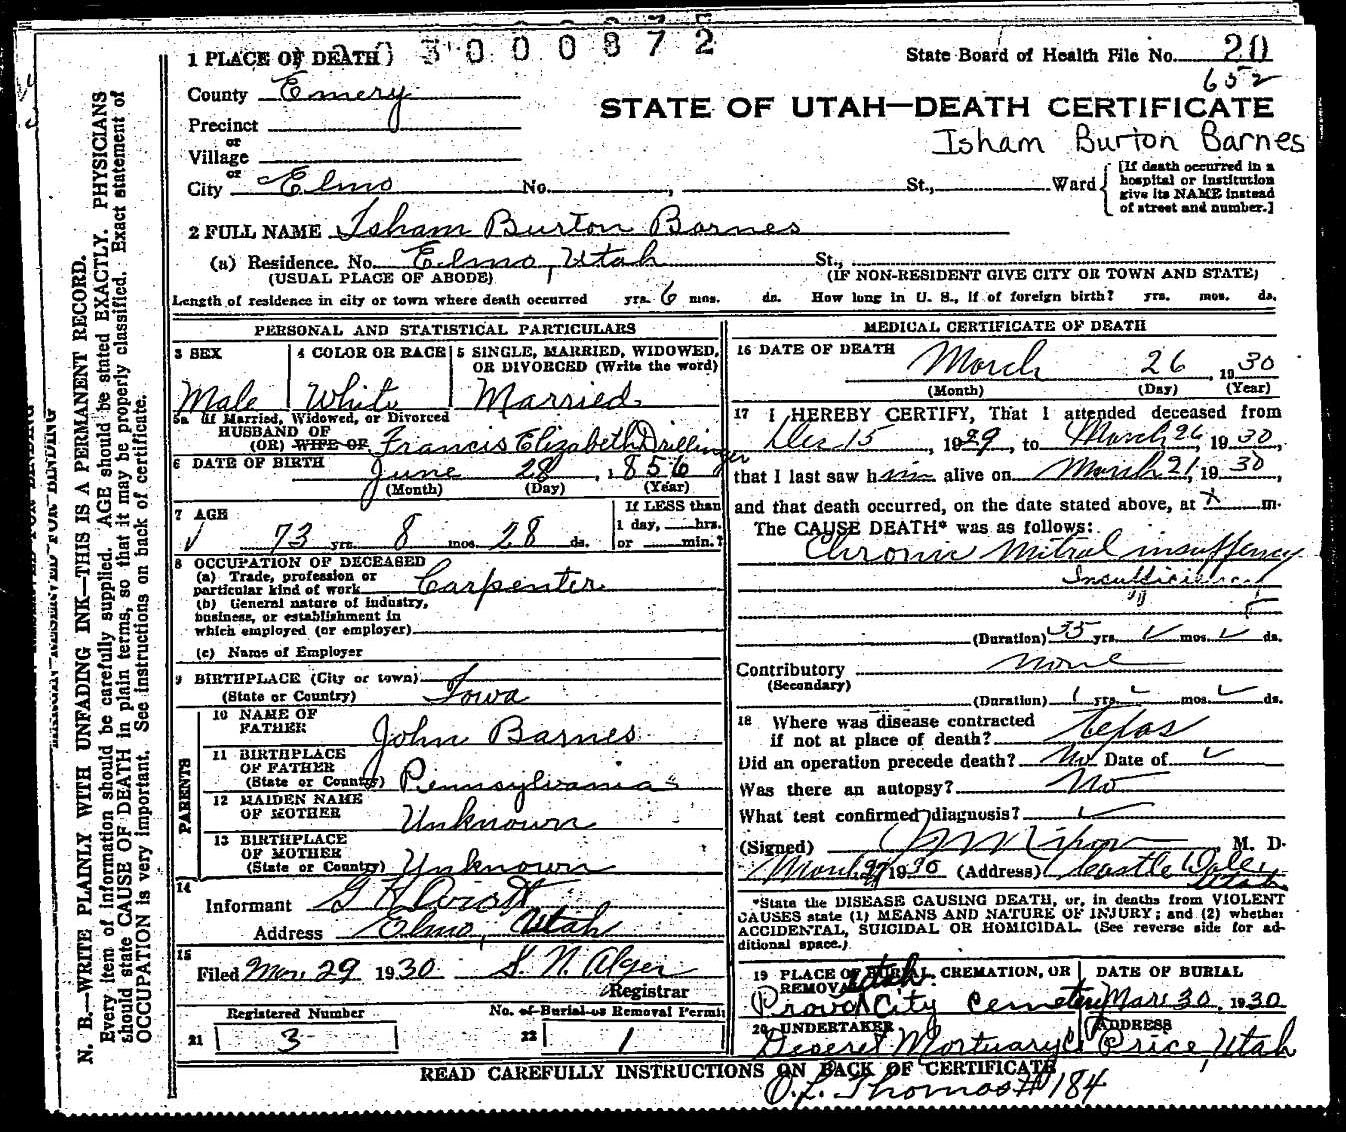 3000872
1 PLACE OF DEATH
State Board of Health File No. 20
652
County Emery
STATE OF UTAH—DEATH CERTIFICATE
Precinct
or
Isham Burton Barnes
Village
or
City Elmo No. , St., Ward
[If death occurred in a
hospital or institution
give its NAME instead
of street and number.]
2 FULL NAME Isham Burton Barnes
(a) Residence. No. Elmo, Utah St.,
(USUAL PLACE OF ABODE) (IF NON-RESIDENT GIVE CITY OR TOWN AND STATE)
Length of residence in city or town where death occurred yrs. 6 mos. ds. How long in U. S., if of foreign birth? yrs. mos. ds.
PERSONAL AND STATISTICAL PARTICULARS
3 SEX
Male
4 COLOR OR RACE
White
5 SINGLE, MARRIED, WIDOWED,
OR DIVORCED (Write the word)
Married
5a If Married, Widowed, or Divorced
HUSBAND OF
(OR) WIFE OF Francis Elizabeth Drillinger
6 DATE OF BIRTH June 28, 1856
(Month) (Day) (Year)
7 AGE
73 yrs. 8 mos. 28 ds.
If LESS than
1 day, hrs.
or min.?
8 OCCUPATION OF DECEASED
(a) Trade, profession or
particular kind of work Carpenter
(b) General nature of industry,
business, or establishment in
which employed (or employer)
(c) Name of Employer
9 BIRTHPLACE (City or town)
(State or Country) Iowa
PARENTS
10 NAME OF
FATHER John Barnes
11 BIRTHPLACE
OF FATHER
(State or Country) Pennsylvania
12 MAIDEN NAME
OF MOTHER Unknown
13 BIRTHPLACE
OF MOTHER
(State or Country) Unknown
14
Informant G K
Address Elmo, Utah
15
Filed Mar. 29 1930 S. N. Alger
Registrar
Registered Number
No. of Burial or Removal Permit
21 3
22 1
MEDICAL CERTIFICATE OF DEATH
16 DATE OF DEATH March 26 1930
(Month) (Day) (Year)
17 I HEREBY CERTIFY, That I attended deceased from
Dec 15, 1929, to March 26, 1930,
that I last saw him alive on March 21, 1930,
and that death occurred, on the date stated above, at x m.
The CAUSE DEATH* was as follows:
Chronic Mitral insuffency
Insufficiency
(Duration) 35 yrs. mos. ds.
Contributory none
(Secondary)
(Duration) yrs. mos. ds.
18 Where was disease contracted
if not at place of death? Texas
Did an operation precede death? No Date of
Was there an autopsy? No
What test confirmed diagnosis?
(Signed) M. D.
March 27 1930 (Address) Castle Dale,
Utah
*State the DISEASE CAUSING DEATH, or, in deaths from VIOLENT
CAUSES state (1) MEANS AND NATURE OF INJURY; and (2) whether
ACCIDENTAL, SUICIDAL OR HOMICIDAL. (See reverse side for ad-
ditional space.)
19 PLACE OF BURIAL, CREMATION, OR
REMOVAL Utah.
Provo City Cemetery
DATE OF BURIAL
Mar 30, 1930
20 UNDERTAKER
Deseret Mortuary Co
ADDRESS
Price, Utah
READ CAREFULLY INSTRUCTIONS ON BACK OF CERTIFICATE
O. L. Thomas # 184
MARGIN RESERVED FOR BINDING
N. B.—WRITE PLAINLY WITH UNFADING INK—THIS IS A PERMANENT RECORD.
Every item of information should be carefully supplied. AGE should be stated EXACTLY. PHYSICIANS
should state CAUSE OF DEATH in plain terms, so that it may be properly classified. Exact statement of
OCCUPATION is very important. See instructions on back of certificate.